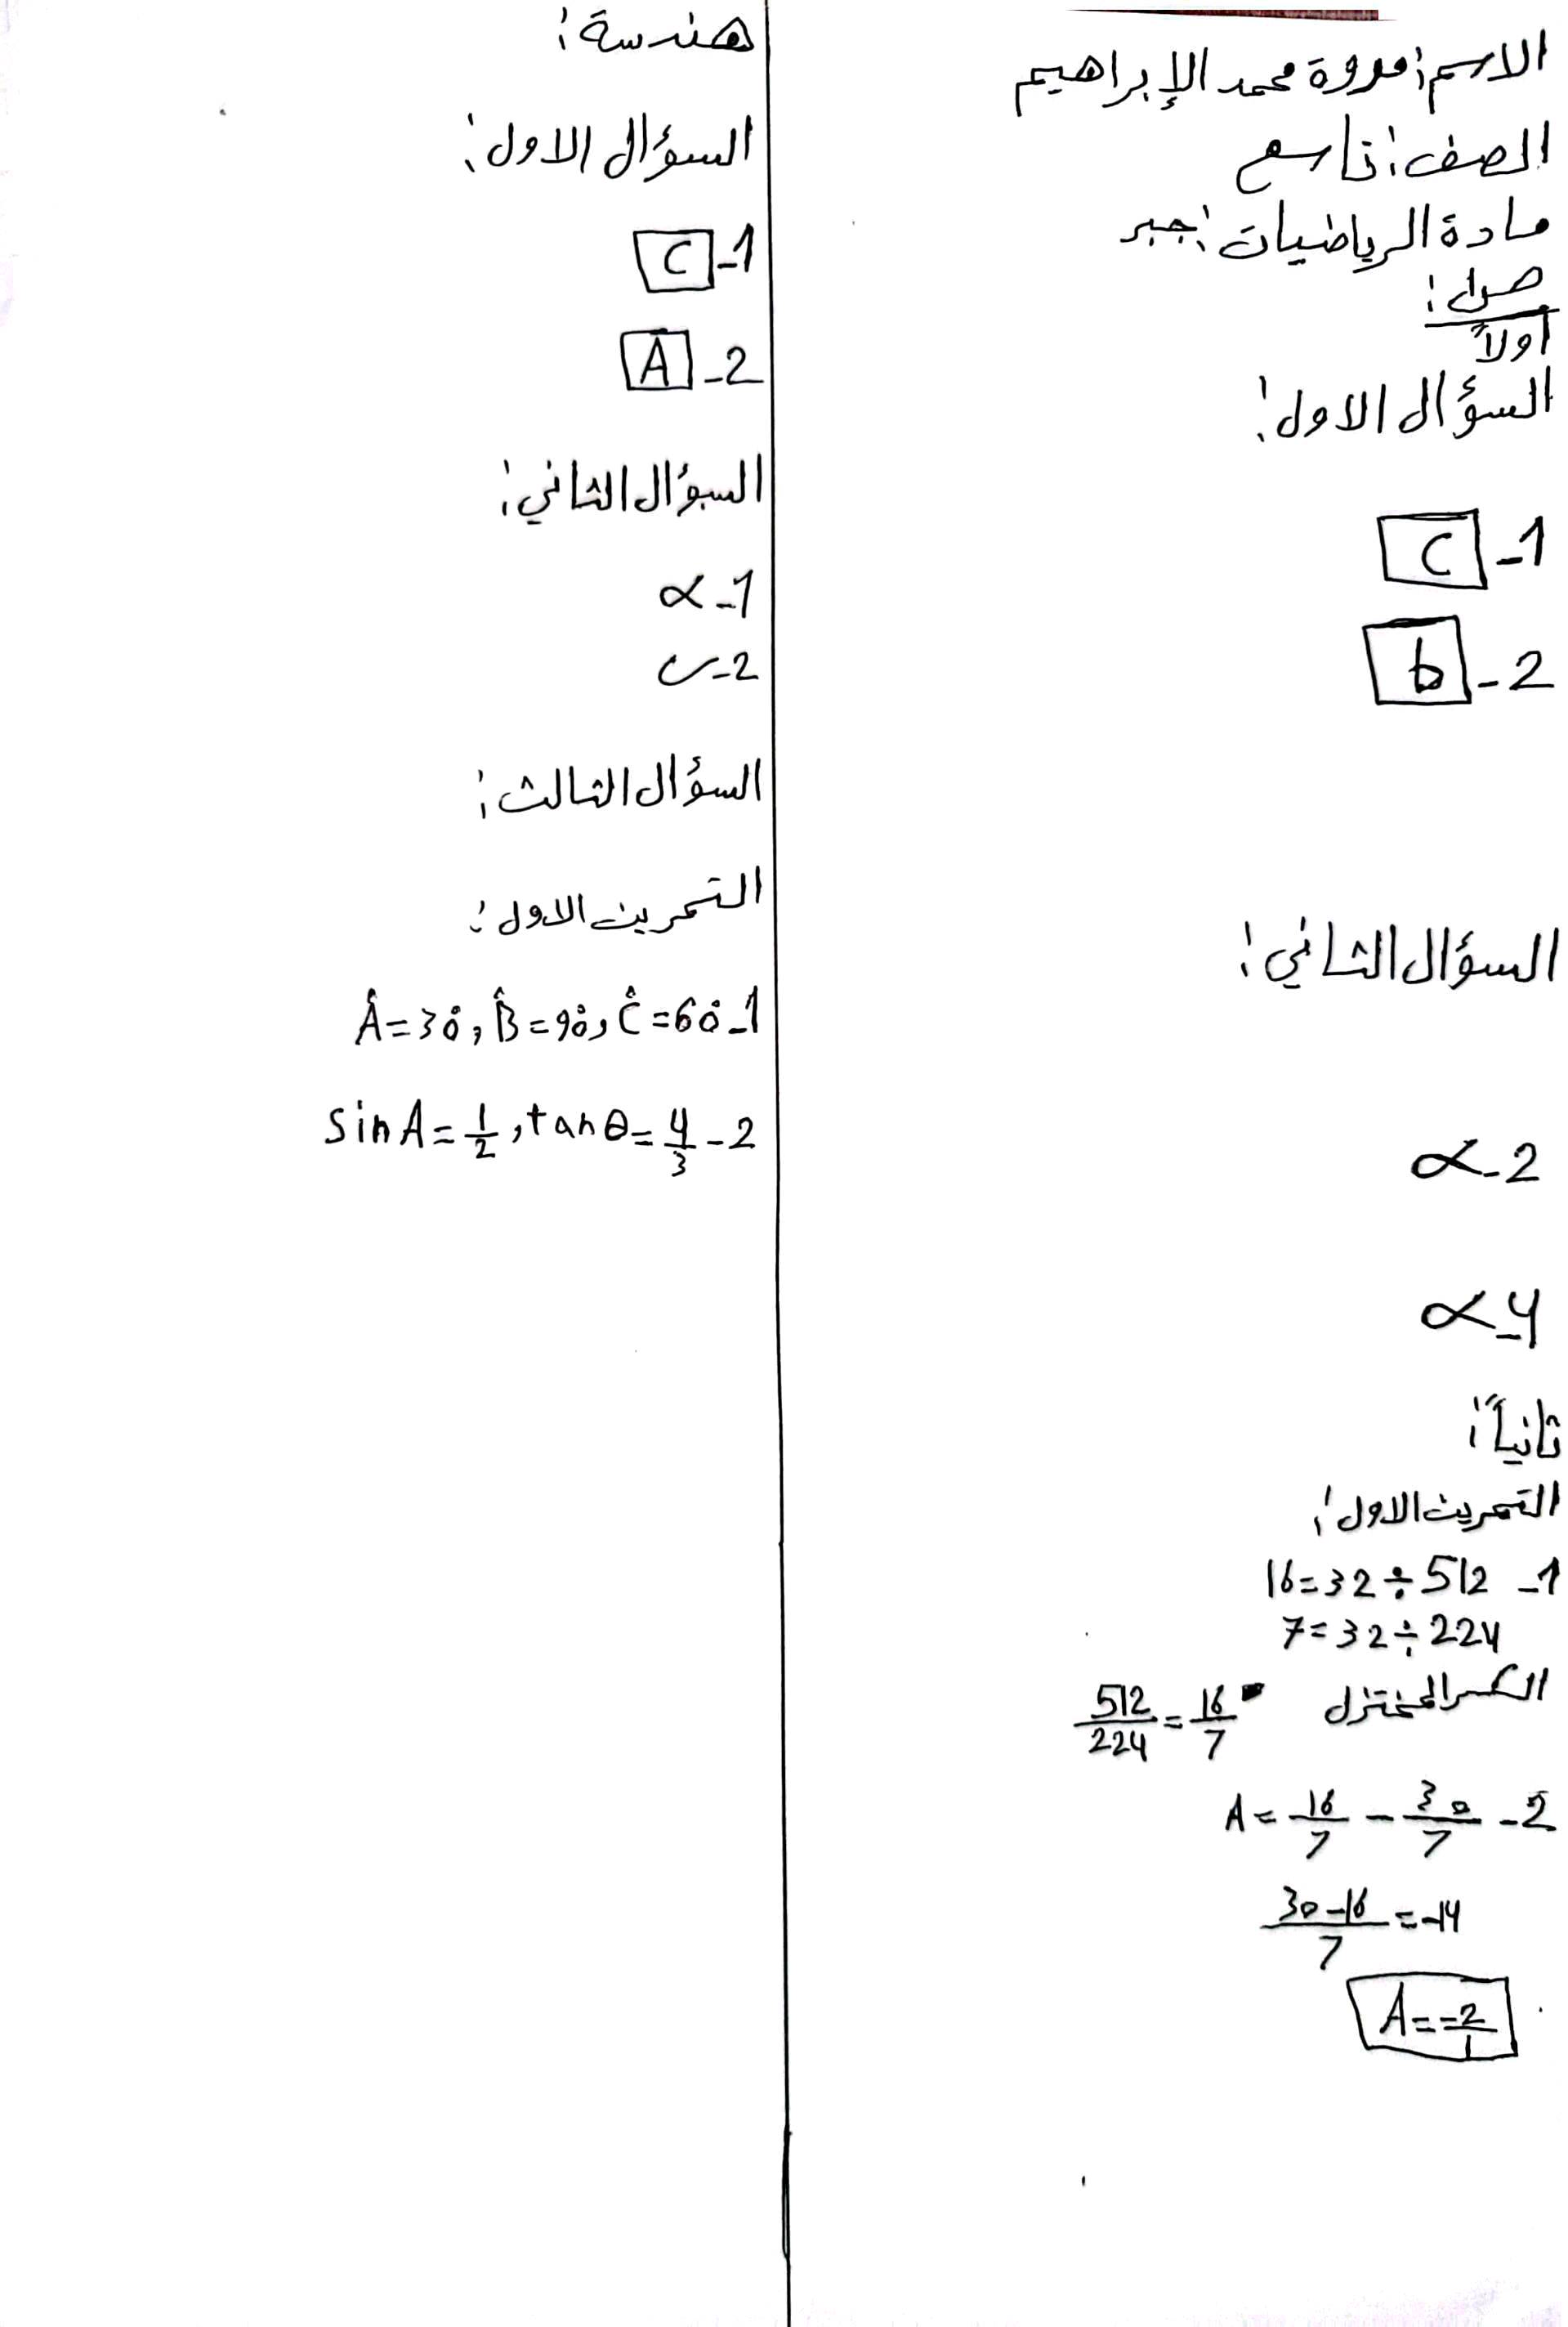 الاسم: مروة محمد الإبراهيم
الصف: تاسع
مادة الرياضيات: جبر
حل:
أولاً
السؤال الاول:
1- C
2- b
السؤال الثاني:
2- ∝
4- ∝
ثانياً:
التمرين الاول:
1- 512 ÷ 32 = 16
224 ÷ 32 = 7
الكسر المختزل 512/224 = 16/7
2- A = 16/7 - 30/7
30-16/7 = -14
A = -2/1
هندسة:
السؤال الاول:
1- C
2- A
السؤال الثاني:
1- ∝
2- ✓
السؤال الثالث:
التمرين الاول:
1- Â=30°, B̂=90°, Ĉ=60°
2- sin A = 1/2, tan θ = 4/3